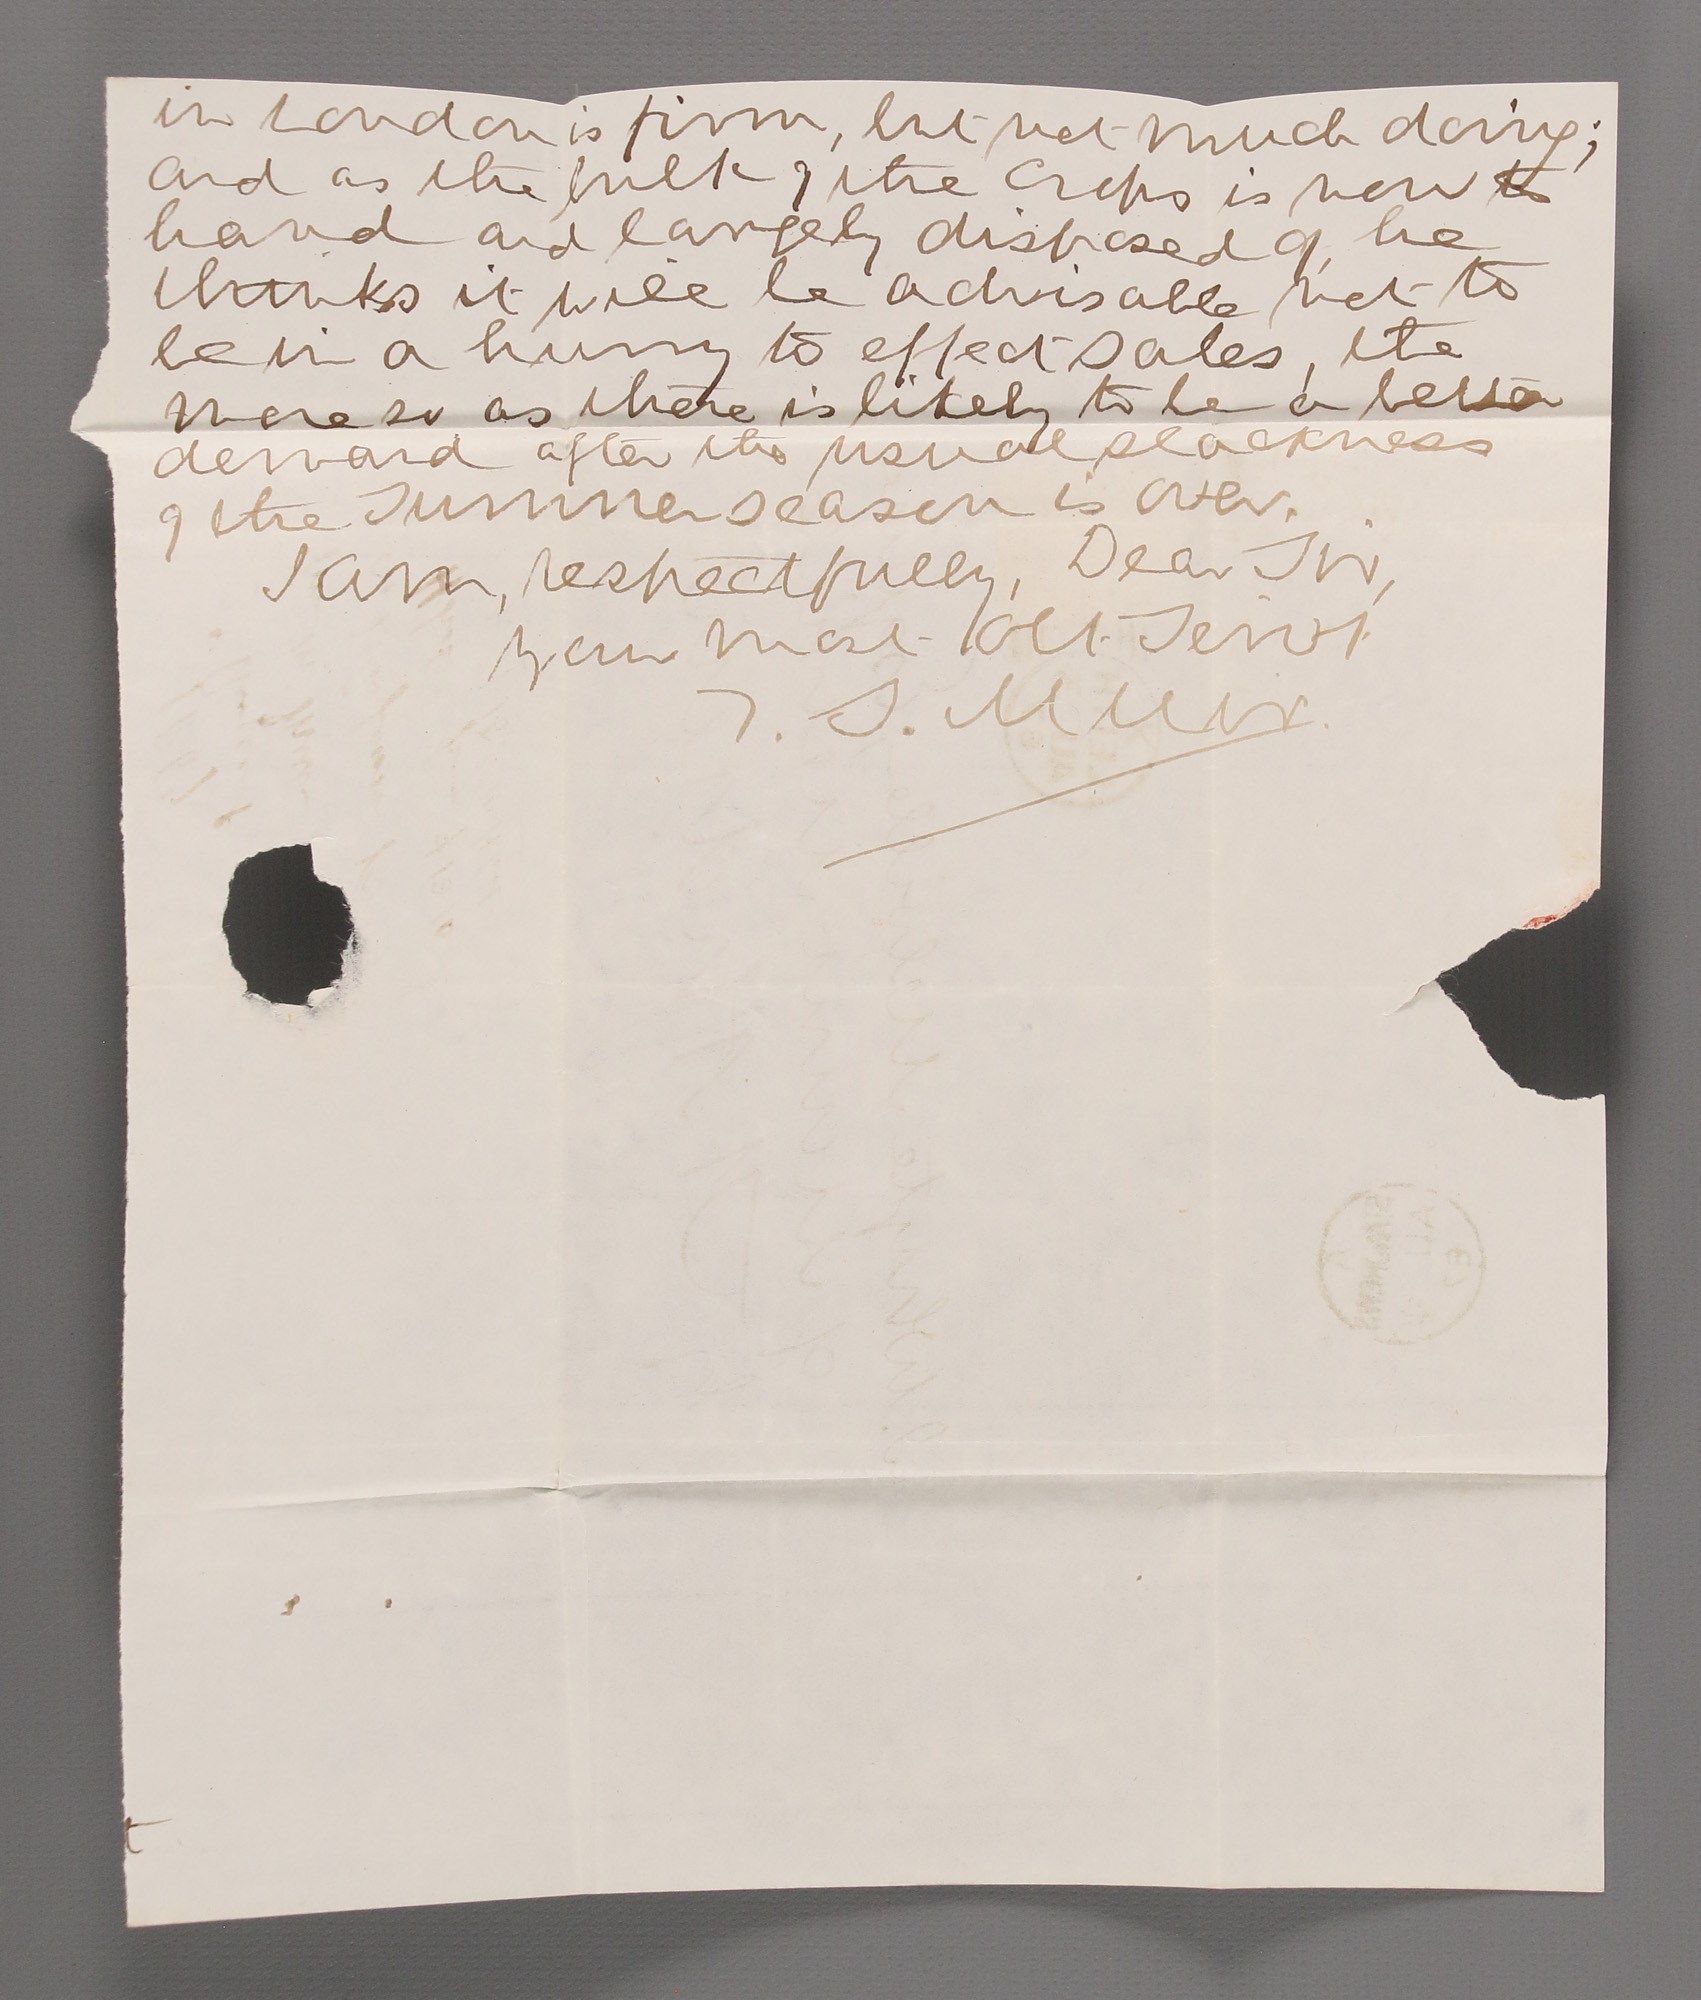 in London is firm, but not much doing;
and as the bulk of the Crops is now to
hand and largely disposed of, he
thinks it will be advisable not to
be in a hurry to effect sales, the
more so as there is likely to be a better
demand after the usual slackness
of the Summer season is over.
I am, respectfully, Dear Sir,
your most Obt Servt
T. S. Muir.